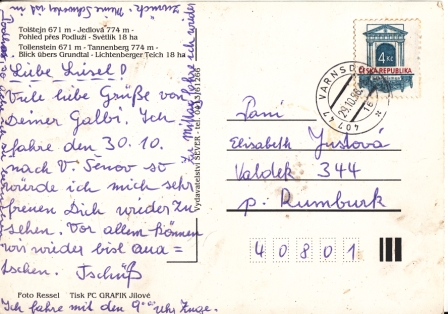 Tolštejn 671 m - Jedlová 774 m -
Pohled přes Podluží - Světlík 18 ha
Tollenstein 671 m - Tannenberg 774 m -
Blick übers Grundtal - Lichtenberger Teich 18 ha
Liebe Liesel!
Viele liebe Grüße von
Deiner Galbi. Ich
fahre den 30.10.
nach V. Šenov so
würde ich mich sehr
freuen Dich wieder zu
sehen. Vor allem können
wir wieder bisl qua=
tschen. Tschüß
Foto Ressel Tisk PC GRAFIK Jílové
Ich fahre mit den 9 Uhr Zuge.
Vydavatelství SEVER - tel.
4 Kč
ČESKÁ REPUBLIKA
407 47 VARNSD
29.10.96
Paní
Elisabeth Justová
Valdek 344
p. Rumburk
40801